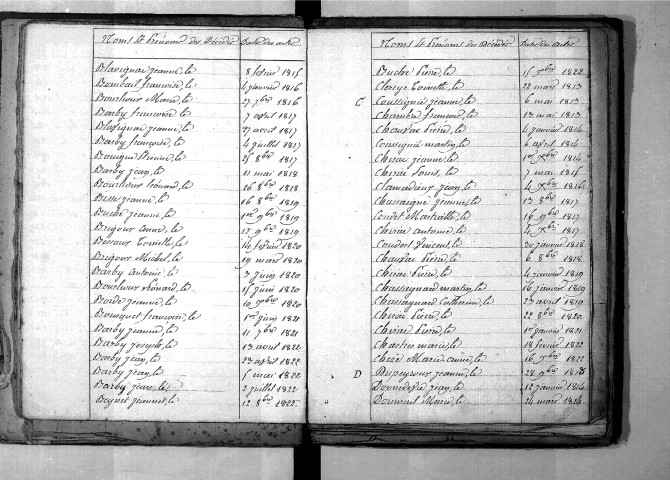 Noms et Prénoms des Décédés Date des actes
Blavignac jeanne, le 8 février 1815
Bombail francoise, le 4 janvier 1816
Bourlioux Marie, le 27 7bre 1816
Barby francoise, le 7 avril 1817
Blavignac jeanne, le 27 avril 1817
Barby françoise, le 4 juillet 1817
Bouique Etienne, le 25 8bre 1817
Barby jean, le 11 mai 1818
Bourlioux Léonard, le 26 8bre 1818
Besse jeanne, le 16 8bre 1819
Buche jeanne, le 1er 9bre 1819
Brigour Anne, le 12 9bre 1819
Bessour Toinette, le 14 février 1820
Brigour Michel, le 19 mars 1820
Barby Antoine, le 3 juin 1820
Bourlioux Léonard, le 15 juin 1820
Borde jeanne, le 10 9bre 1820
Bousquet francoise, le 1er juin 1821
Barby jeanne, le 11 7bre 1821
Barby joseph, le 13 avril 1822
Barby jean, le 23 avril 1822
Barby jean, le 5 mai 1822
Barby jeanne, le 2 juillet 1822
Beynet jeanne, le 12 8bre 1822
Noms et Prénoms des Décédés Date des actes
Buche Pierre, le 15 9bre 1822
C
Clergé Toinette, le 22 mars 1813
Coussignie jeanne, le 6 mai 1813
Chambre francois, le 13 mai 1813
Chauzac Pierre, le 4 janvier 1814
Coussignie martin, le 6 avril 1814
Chirac jeanne, le 1er Xbre 1814
Chirié Louis, le 7 mai 1815
Clamadieux jean, le 4 Xbre 1816
Chassaigne jeanne, le 13 8bre 1817
Coudet Martialle, le 16 9bre 1817
Chirié antoine, le 4 Xbre 1817
Coudert Vincent, le 30 janvier 1818
Chauzac Pierre, le 6 8bre 1818
Chirac Pierre, le 4 janvier 1819
Chassagnard martin, le 16 janvier 1819
Chassagnard Catherine, le 23 avril 1819
Chirac Pierre, le 22 8bre 1820
Chirié Pierre, le 1er janvier 1821
Chastre marie, le 18 février 1822
Chirié Marie anne, le 16 9bre 1822
D
Dupeyroux jeanne, le 28 9bre 1813
Donnedevie jean, le 12 janvier 1814
Doumail Marie, le 24 mars 1814